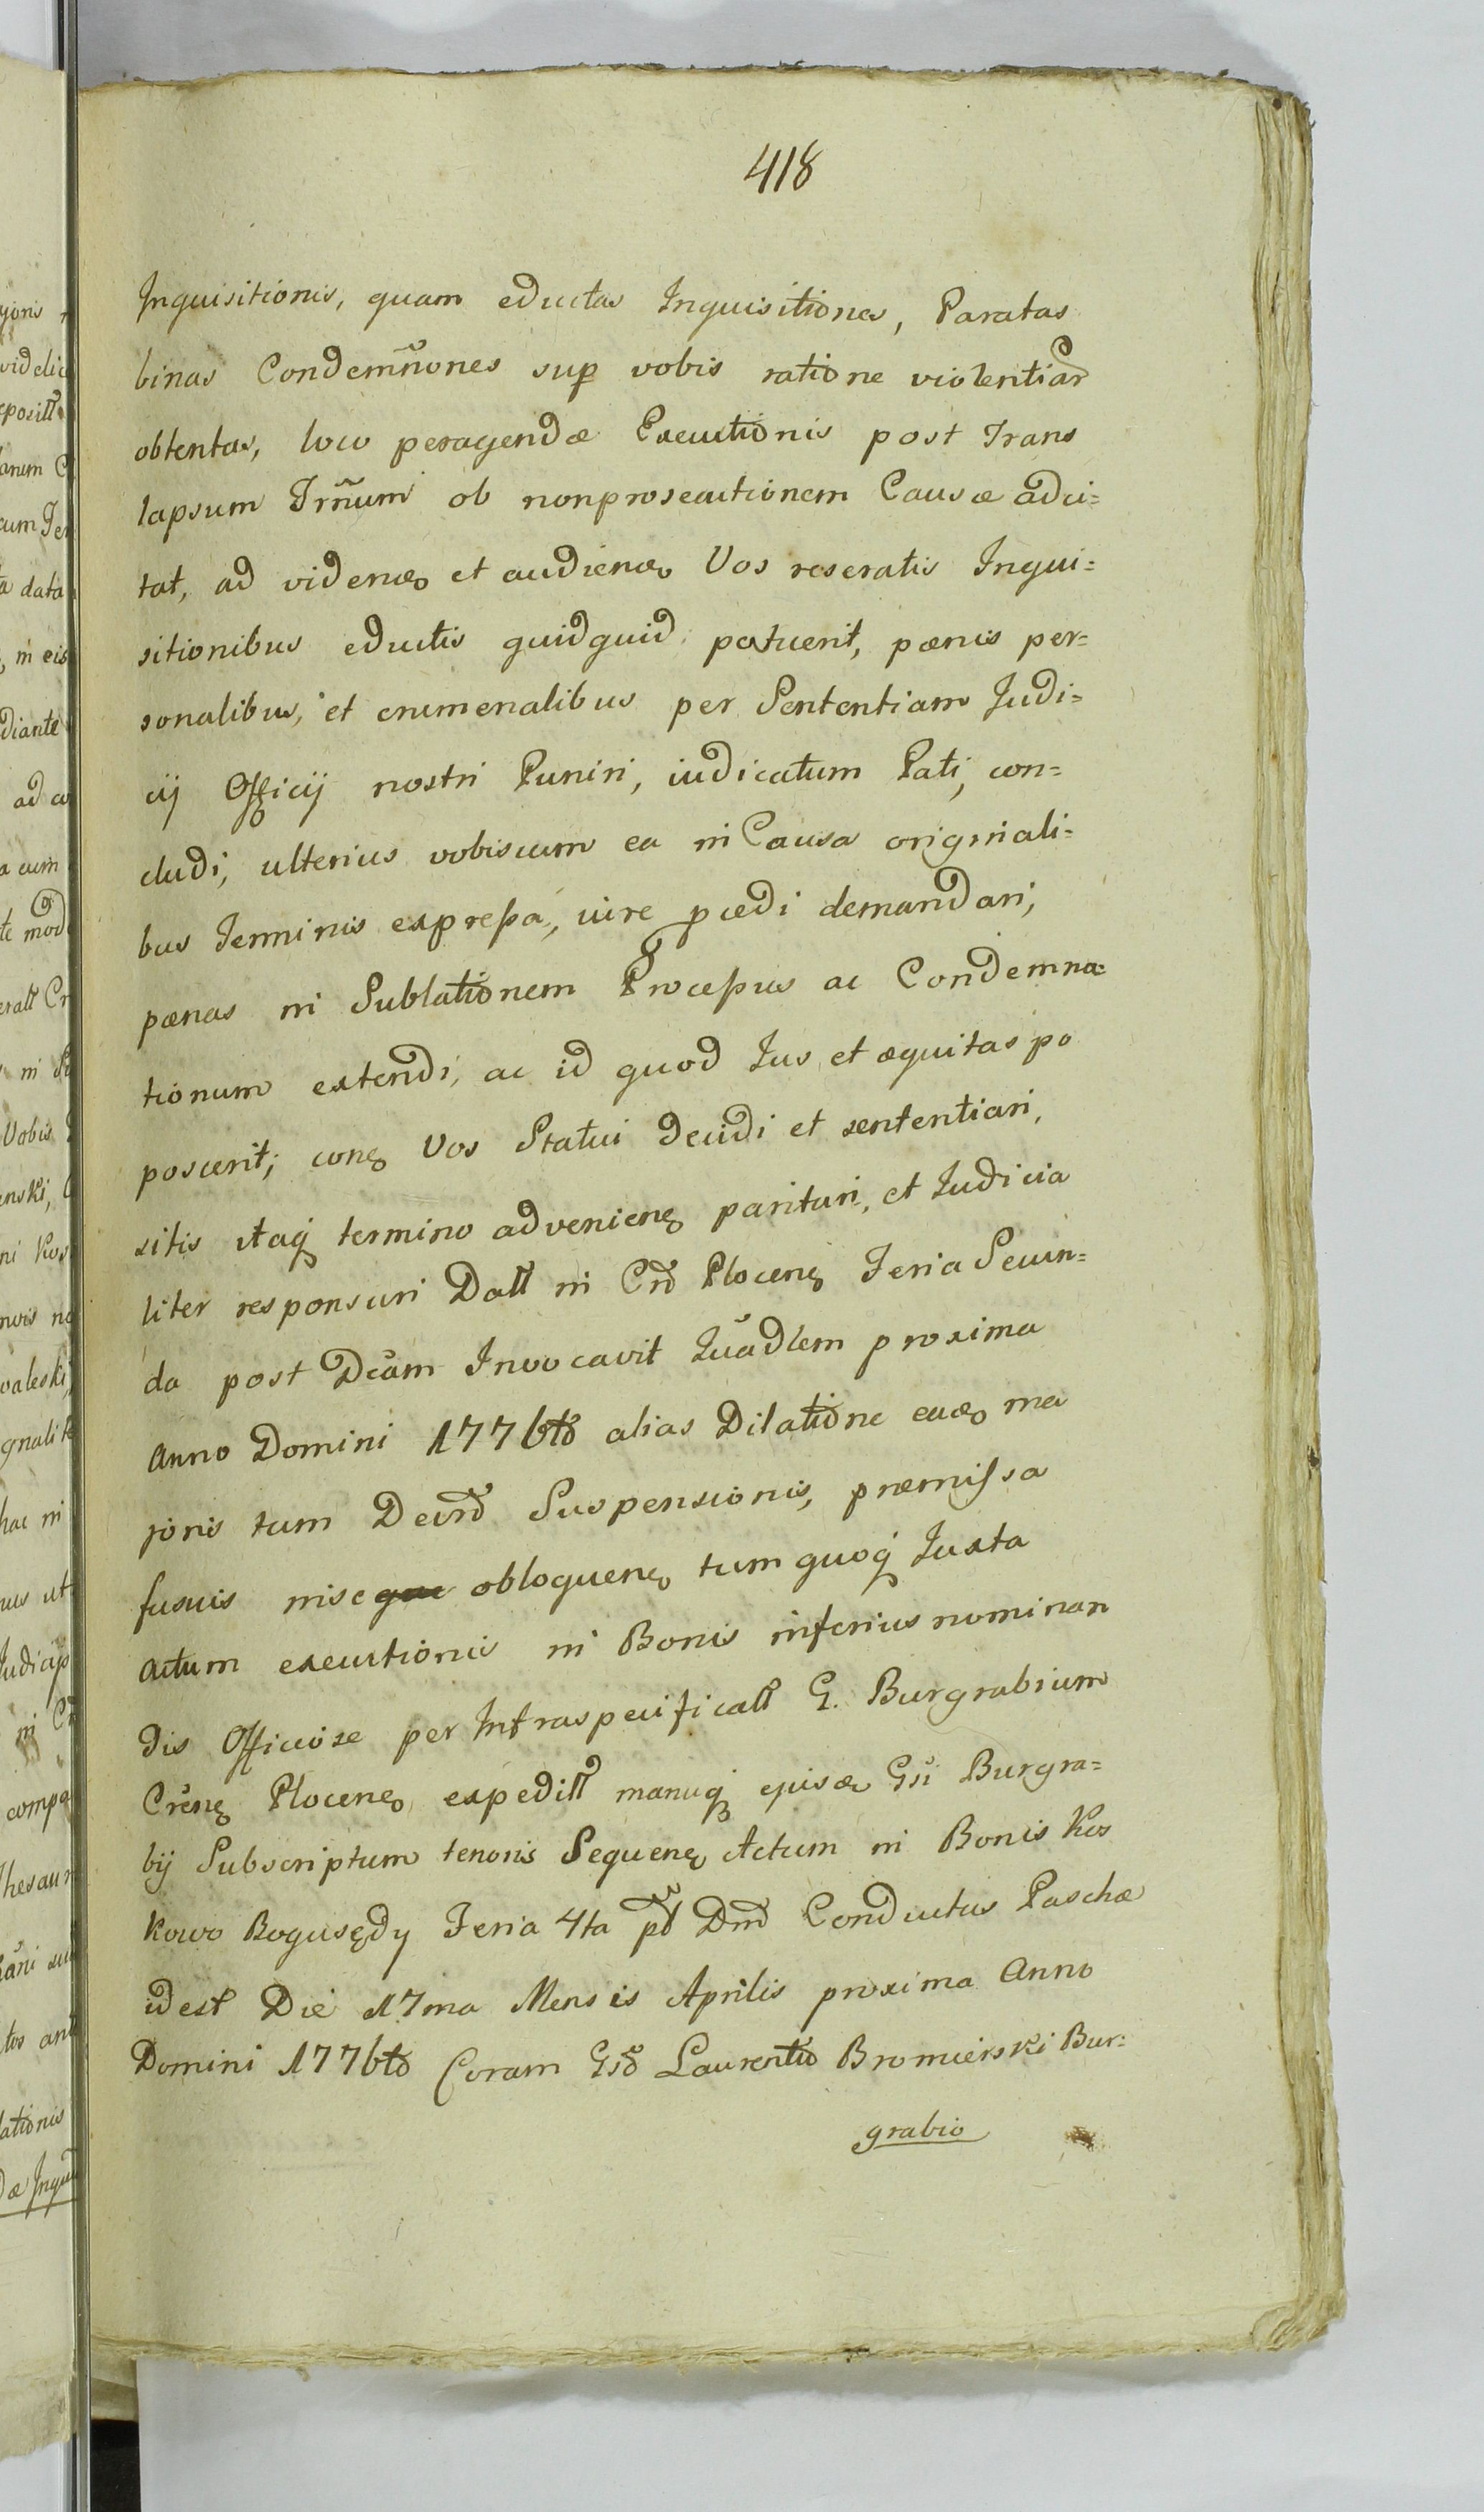 418
Inquisitionis, quam eductas Inquisitiones, Paratas
binas Condemñones sup vobis ratione violentiar
obtentas, loco peragendæ Executionis post Trans
lapsum Trñum ob nonprosecutionem Causæ adci=
tat, ad videnę et audienę Vos reseratis Inqui=
sitionibus eductis quidquid patuerit, pœnis per=
sonalibus, et crumenalibus per Sententiam Judi=
cij Officij nostri Puniri, iudicatum Pati, con=
cludi, ulterius vobiscum ea in Causa originali=
bus Terminis expressa, iure p̱cedi demandari,
pœnas in Sublationem Processus ac Condemna=
tionum extendi, ac id quod Jus et æquitas po
poscerit, conę Vos Statui decidi et sententiari,
sitis itaq̨ termino advenienę parituri, et Judicia
liter responsuri Datt in Crõ Plocenę Feria Secun=
da post Dcam Invocavit Quadlem proxima
Anno Domini 1776to alias Dilatione exę ma
joris tum Decrõ Suspensionis, præmissa
fusius obloquenę tum quoq̨ Juxta
Actum executionis in Bonis inferius nominan
dis Officiose per Infraspecificatt G. Burgrabium
Crenę Plocenę expeditt manuq̨ ejusdę Gsi Burgra=
bij Subscriptum tenoris Sequenę Actum in Bonis Kos
kowo Bogusędy Feria 4ta pt Dnõ Conductus Paschæ
idest Die 17ma Mensis Aprilis proxima Anno
Domini 1776to Coram Gsõ Laurentio Bromierski Bur=
grabio